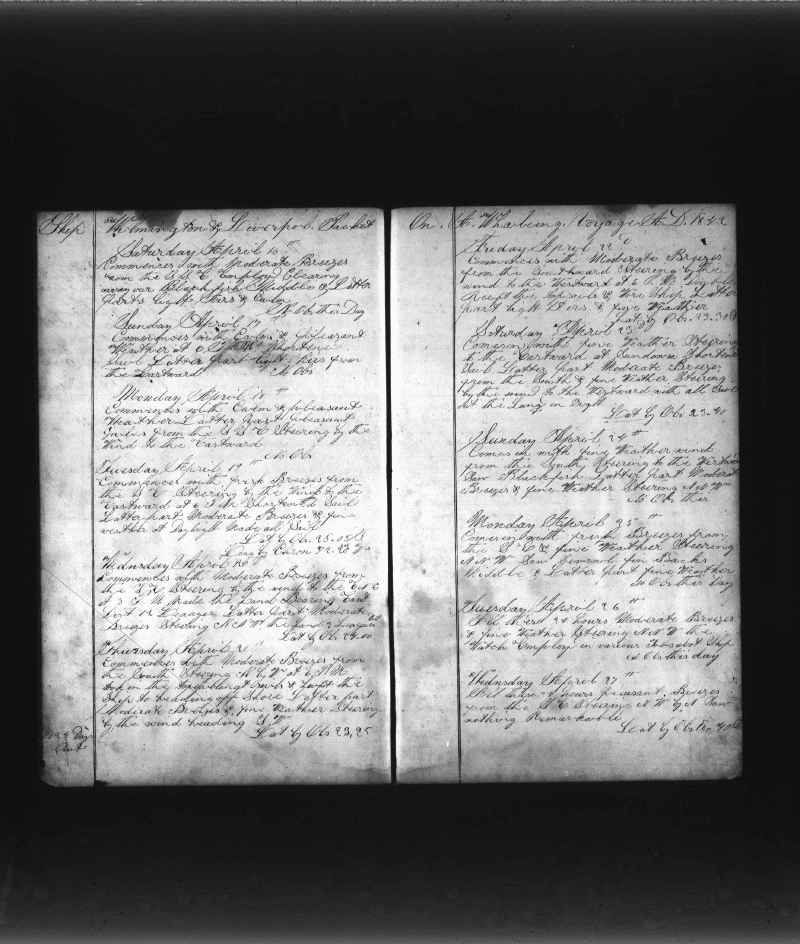 Ship Wilmington & Liverpool. Packet
Saturday April 16th
Commences with Moderate Breezes
from the S S E Employ Clearing
away our Blackfish Middle & Latter
parts Light Airs & Calm
No Obs this Day
Sunday April 17
Commences with Calm & Pleasant
Weather at
Sail Latter part light Airs from
the Eastward No Obs
Monday April 18th
Commences with Calm & pleasant
Weather Latter part pleasant
from the S S E Steering by the
Wind to the Eastward
No Obs
Tuesday April 19th
Commences with fresh Breezes from
the S E Steering by the Wind to the
Eastward at 6 P M Shortened Sail
Latter part Moderate Breezes & fine
weather at Daylight Made all Sail
Lat by Obs 25.05
Long by Chron
Wednsday April 20
Commences with Moderate Breezes from
the Steering by the wind to the
at M Made the Land Bearing East
Dist 12 Leagues Latter part Moderate
Breezes Steering N N W the land
Lat by Obs 24.00
Thursday April 21
Commences with Moderate Breezes from
the South Steering by W at 6 P M
took in the Topgallant Sails & Luft the
Ship to heading off Shore Latter part
Moderate Breezes & fine Weather Steering
by the wind heading
Lat by Obs 23,25
Days
Out
On. A. Whaleing. Voyage A. D. 1842
Friday April 22
Commences with Moderate Breezes
from the Southward Steering by the
wind to the Westward at 6 P. M.
Reeft the Topsails & Wore Ship Latter
part light Airs & fine Weather
Lat by Obs. 23.30
Saturday April 23
Comes in with fine Weather Steering
to the Eastward at Sundown Shortened
Sail Latter part Moderate Breezes
from the South & fine Weather Steering
by the wind to the Westward with all Sail
out the Land in Sight
Lat by Obs 23.40
Sunday April 24th
Comes in with fine Weather wind
from the South Steering to the Westward
Saw Blackfish Latter part Moderate
Breezes & fine Weather Steering N N W
No Obs this
Monday April 25th
Comes in with fresh Breezes from
the S E & fine Weather Steering
N N W Saw Several fin Backs
Middle & Latter part fine Weather
No Obs this Day
Tuesday April 26th
All these 24 hours Moderate Breezes
& fine Weather Steering N N W the
Watch Employ in various Jobs about Ship
No Obs this day
Wednsday April 27th
All these 24 hours pleasant. Breezes
from the S E Steering N W by N Saw
nothing Remarkable
Lat by Obs